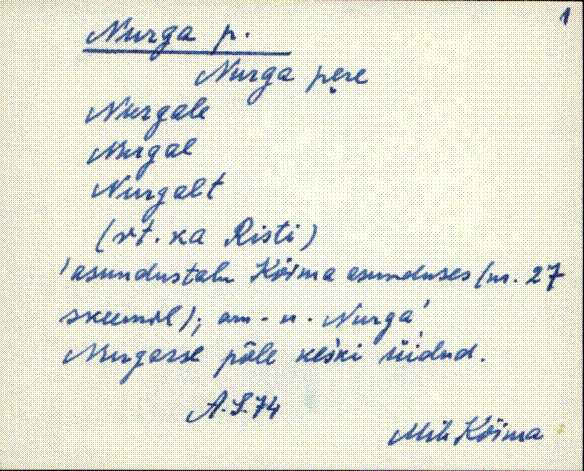 1
Nurga p.
Nurga pere
Nurgale
Nurgal
Nurgalt
(vt. ka Risti)
'asundustalu Kõima asunduses (nr. 27
skeemil); am-n. Nurga'
Nurgasse põle keski süidud.
A.S.74
Mih Kõima